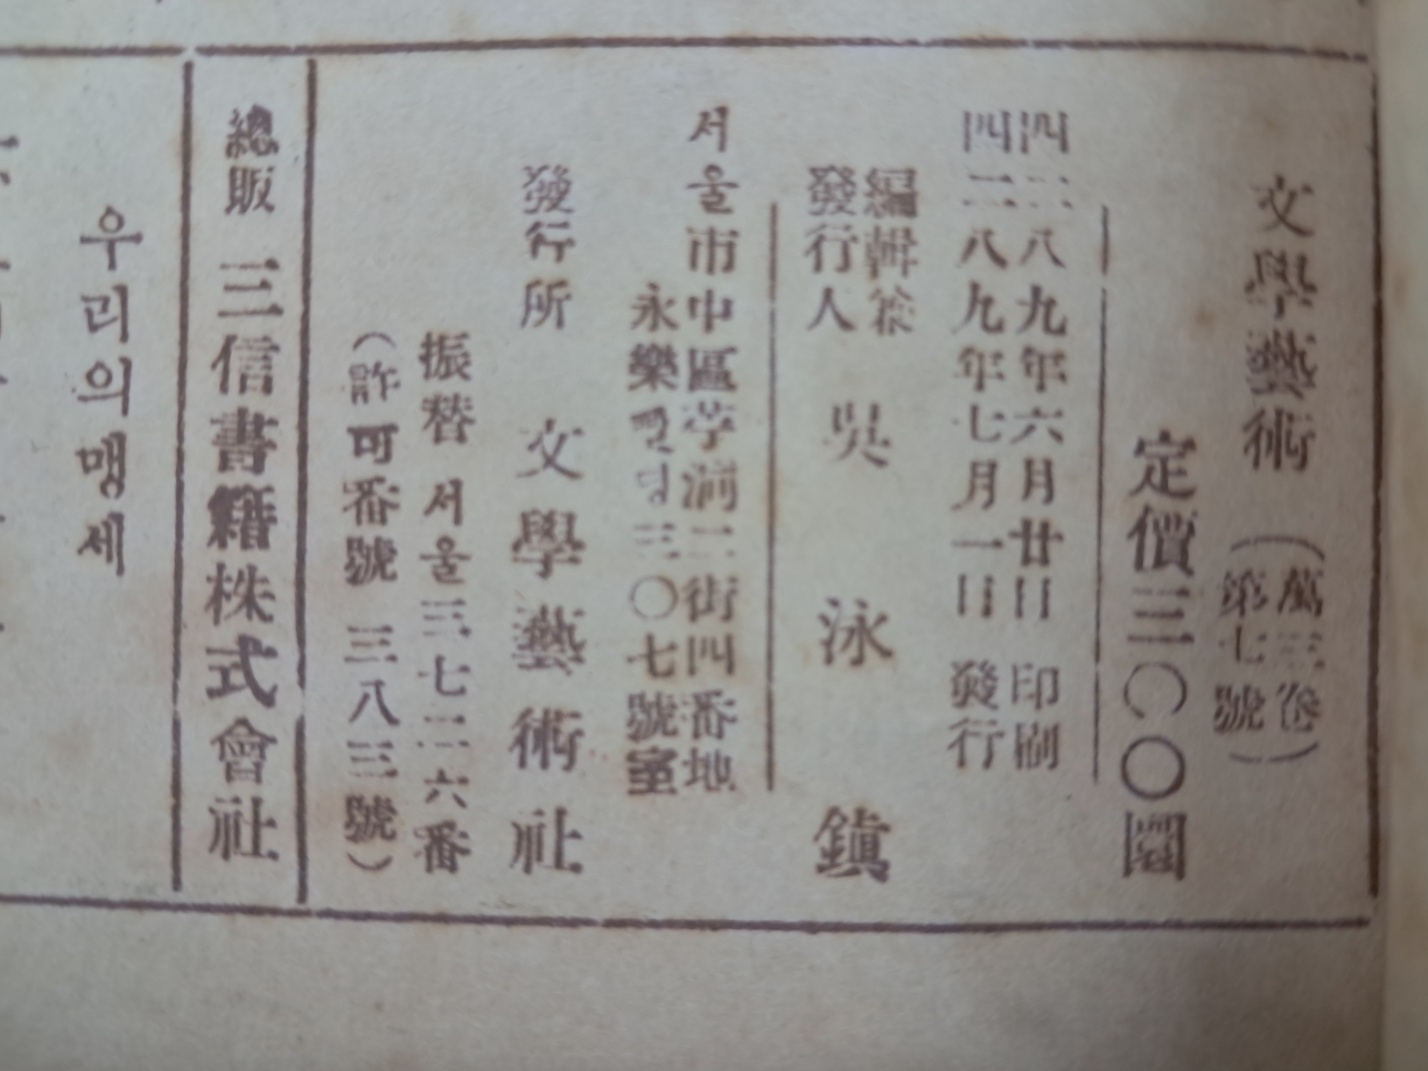 文學藝術
(萬三卷
第七號)
定價三〇〇圜
四二八九年六月廿日 印刷
四二八九年七月一日 發行
編輯兼
發行人
吳泳鎭
서울市中區苧洞二街四番地
永樂삘딩三〇七號室
發行所 文學藝術社
振替 서울三七二六番
(許可番號 三八三號)
總販 三信書籍株式會社
우리의맹세